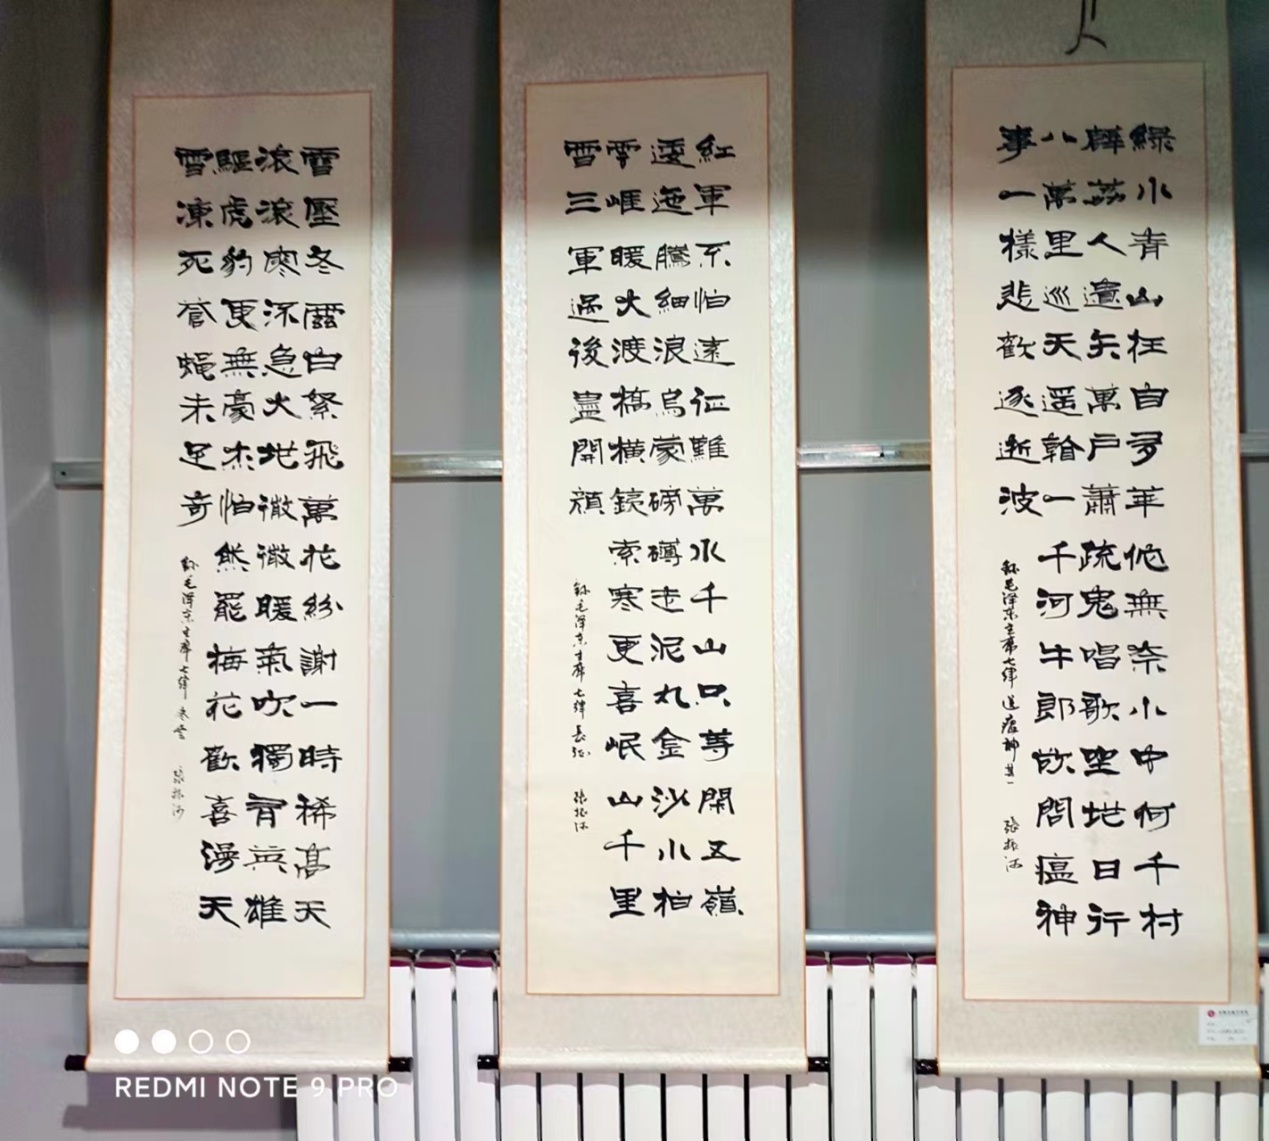 綠水青山枉自多華佗無奈小虫何千村
薜荔人遺矢萬戶蕭疏鬼唱歌坐地日行
八萬里巡天遥看一千河牛郎欲問瘟神
事一樣悲歡逐逝波
錄毛澤東主席七律送瘟神其一 張振河
紅軍不怕遠征難萬水千山只等閑五嶺
逶迤騰細浪烏蒙磅礴走泥丸金沙水拍
雲崖暖大渡橋橫鐵索寒更喜岷山千里
雪三軍過後盡開顏
錄毛澤東主席七律長征 張振河
雪壓冬雲白絮飛萬花紛謝一時稀高天
滾滾寒流急大地微微暖氣吹獨有英雄
驅虎豹更無豪杰怕熊羆梅花歡喜漫天
雪凍死蒼蠅未足奇
錄毛澤東主席七律冬雲 張振河
REDMI NOTE 9 PRO